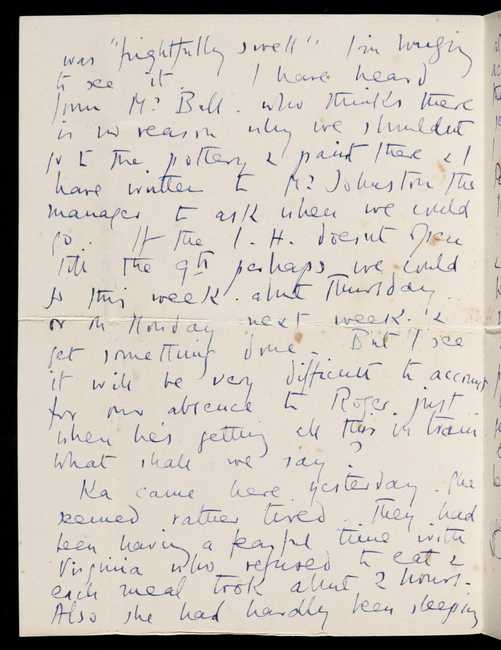 was "frightfully swell" I'm longing
to see it. I have heard
from Mr Ball. who thinks there
is no reason why we shouldnt
go to the pottery & paint there & I
have written to Mr Johnston the
manager to ask when we could
go. If the I. H. doesnt open
till the 9th perhaps we could
go this week. about Thursday.
or on Monday next week. &
get something done. But I see
it will be very difficult to account
for our absence to Roger just
when he's getting all this in train
What shall we say?
Ka came here yesterday. She
seemed rather tired. They had
been having a fearful time with
Virginia who refused to eat &
each meal took about 2 hours.
Also she had hardly been sleeping